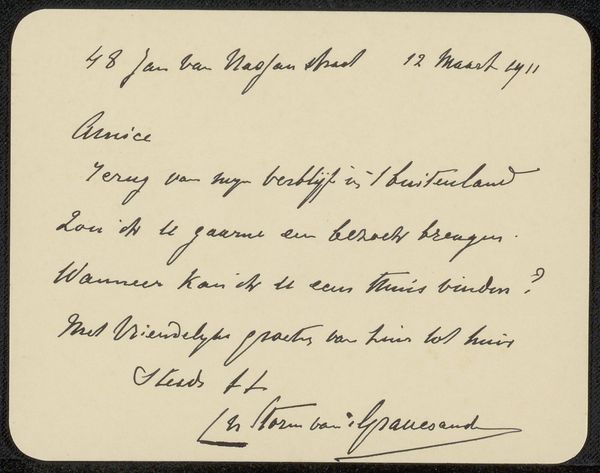 48 Jan van Nassau straat 12 Maart 1911
Amice
Terug van mijn verblijf in 't buitenland
Zou ik U gaarne een bezoek brengen.
Wanneer kan ik U eens thuis vinden?
Met Vriendelyke groeten van huis tot huis
Steeds tt
Storm van 's Gravesande